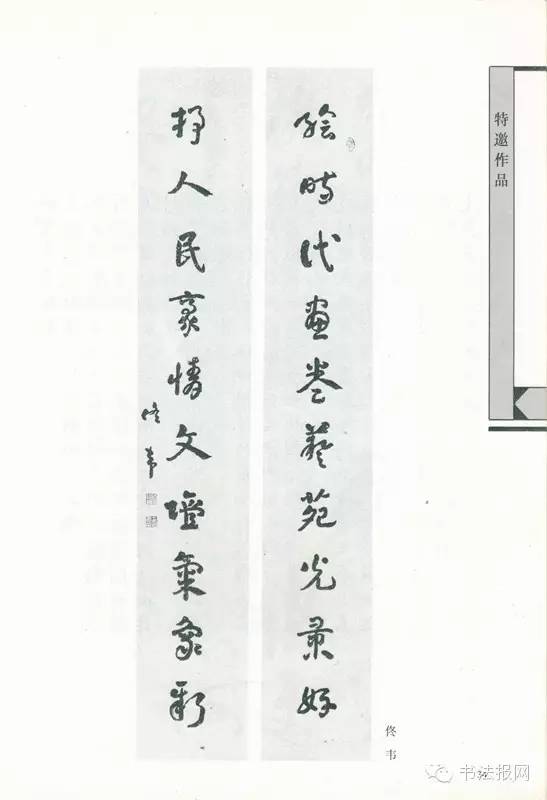 特邀作品
绘時代畫卷藝苑光景好
抒人民豪情文壇氣象新
佟韦
佟韦
书法报网